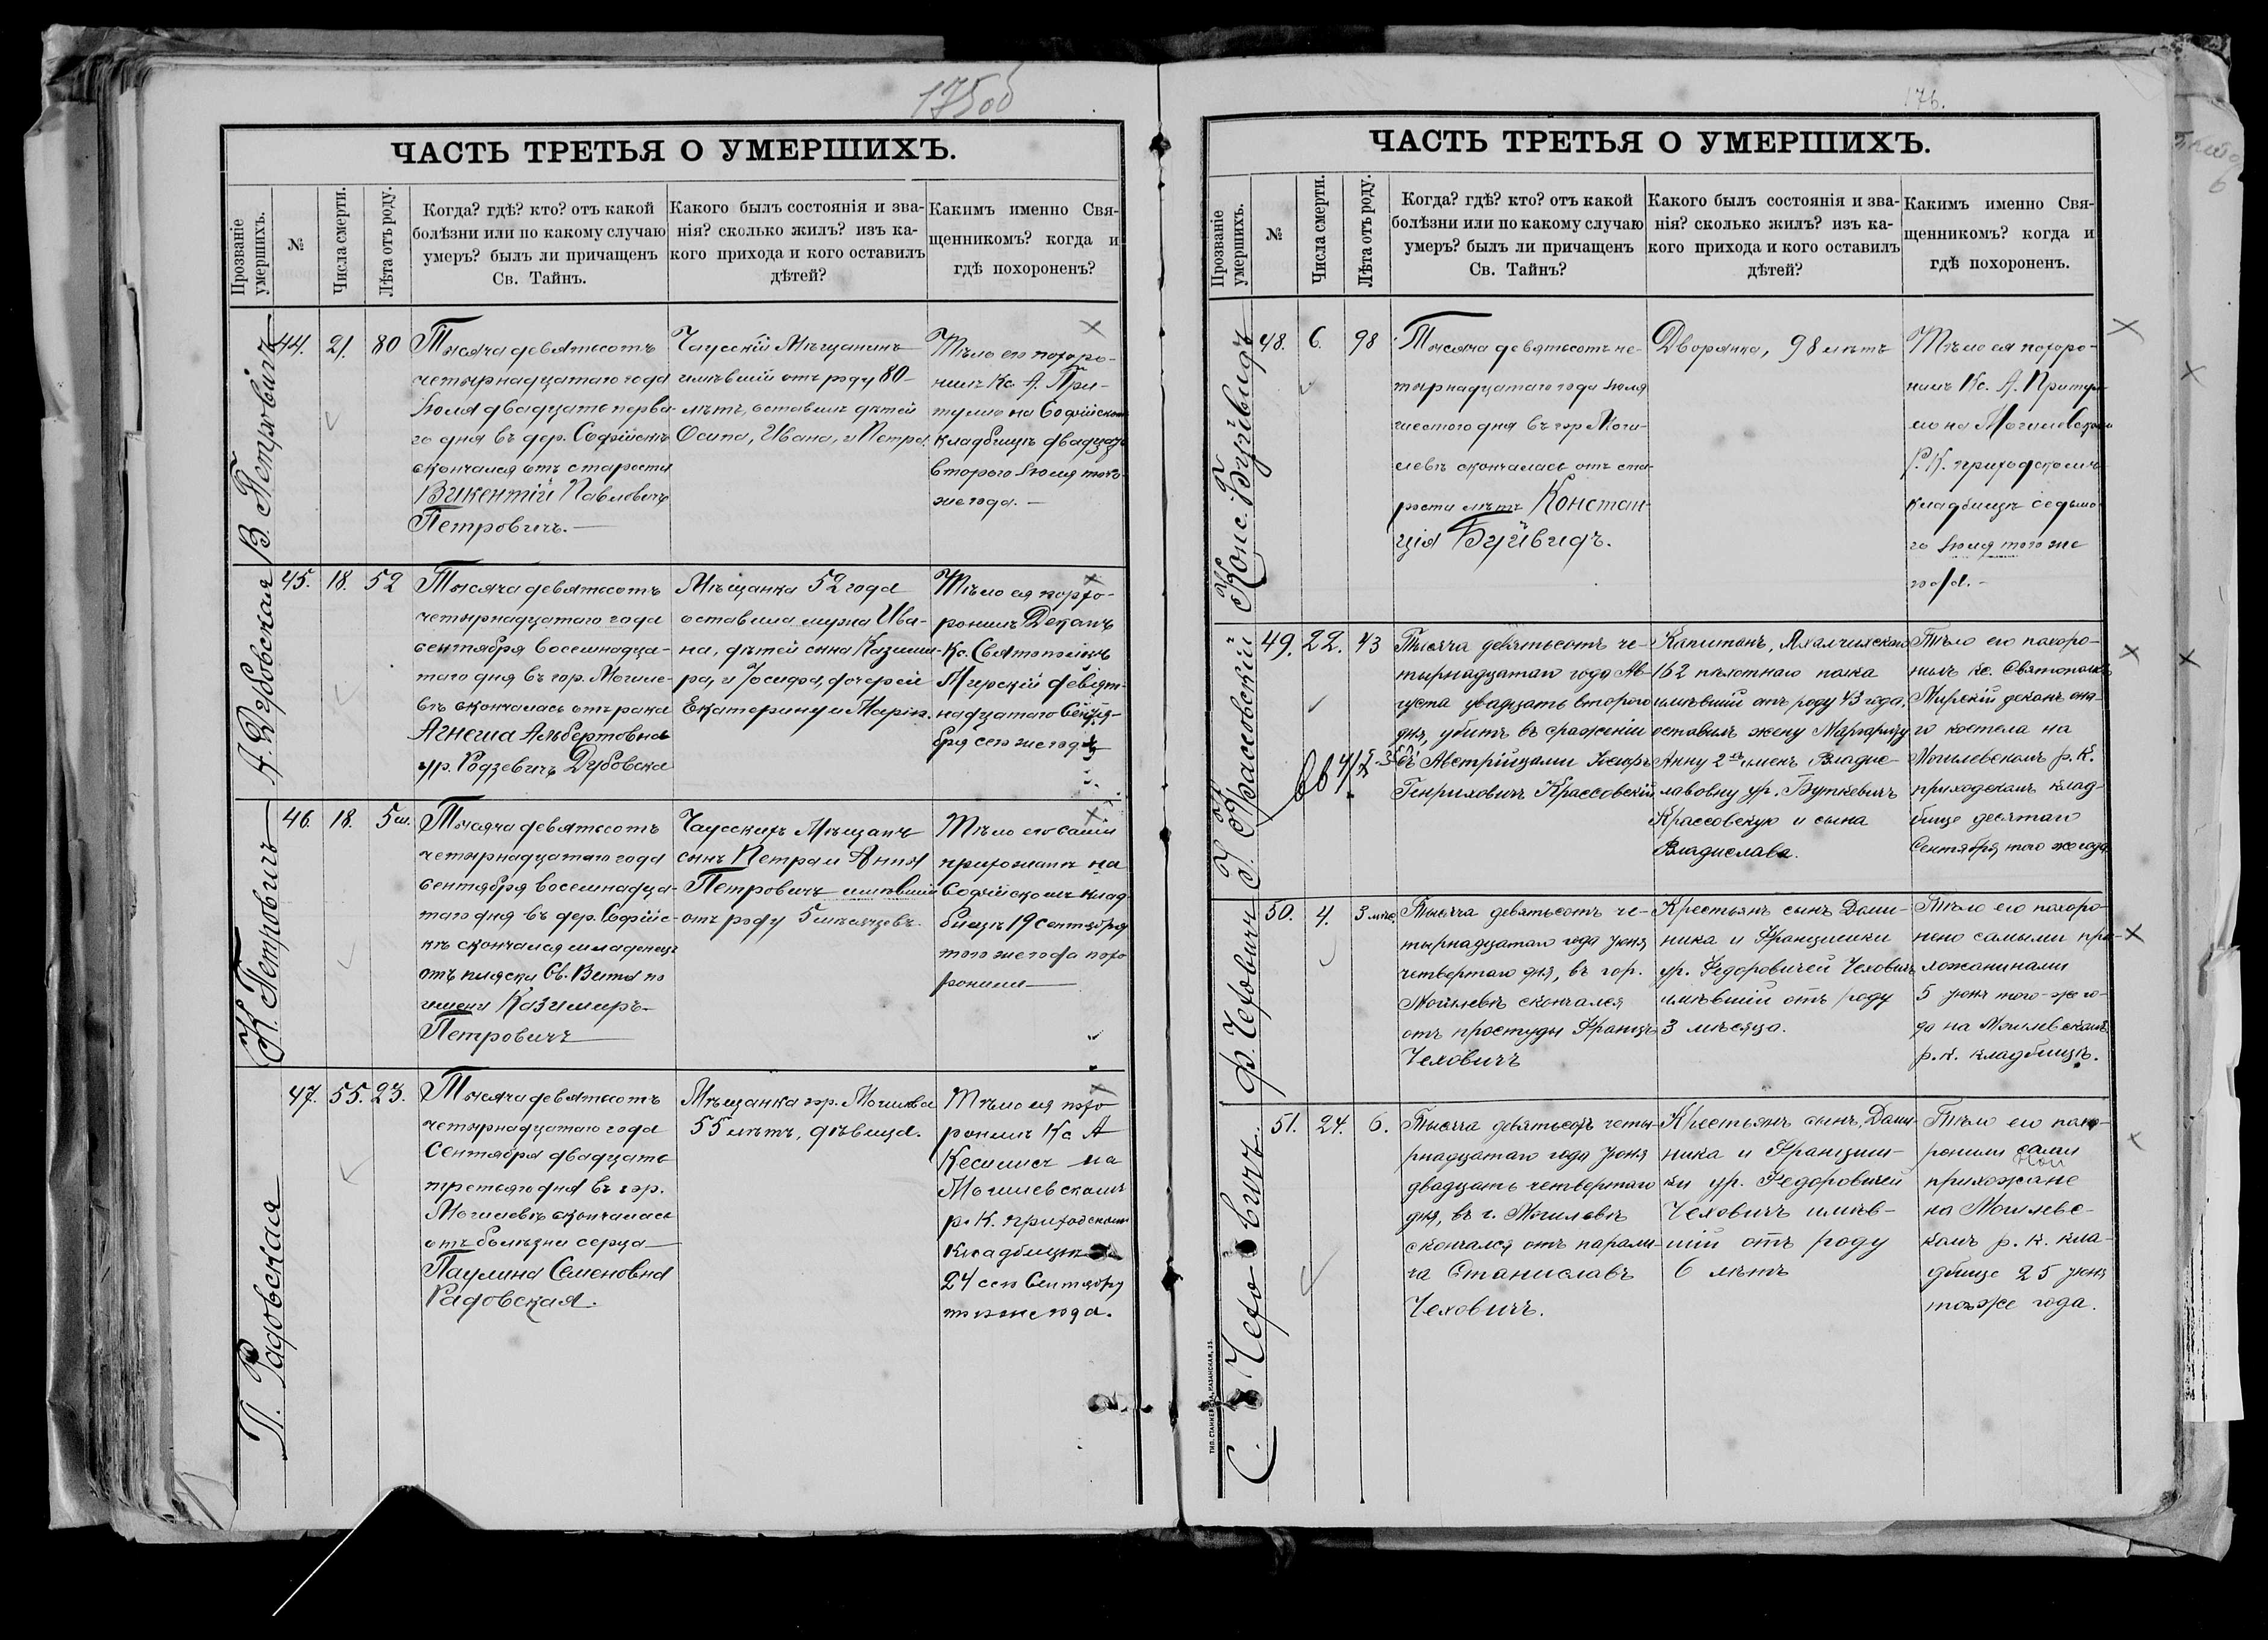 175об
ЧАСТЬ ТРЕТЬЯ О УМЕРШИХЪ.
Прозваніе умершихъ.
№
Числа смерти.
Лѣта отъ роду.
Когда? гдѣ? кто? отъ какой
болѣзни или по какому случаю
умеръ? былъ ли причащенъ
Св. Тайнъ.
Какого былъ состоянія и зва-
нія? сколько жилъ? изъ ка-
кого прихода и кого оставилъ
дѣтей?
Какимъ именно Свя-
щенникомъ? когда и
гдѣ похороненъ?
В. Петровичъ
44.
21.
80
Тысяча девятьсотъ
четырнадцатаго года
Іюля двадцать перва-
го дня въ дер. Софійскъ
скончался отъ старости
Викентій Павловичъ
Петровичъ.
Чаусскій Мѣщанинъ
имѣвшій отъ роду 80
лѣтъ, оставилъ дѣтей
Осипа, Ивана, и Петра
Тѣло его похоро-
нилъ Кс. А. При-
тулло на Софійском
кладбищѣ двадцать
второго Іюля того
же года.
А. Дубовская
45.
18.
52
Тысяча девятьсотъ
четырнадцатаго года
сентября восемнадца-
таго дня въ гор. Могиле-
вѣ скончалась отъ рака
Агнеша Альбертовна
ур. Родзевичъ Дубовска
Мѣщанка 52 года
оставила мужа Ива-
на, дѣтей сына Казими-
ра, и Іосифа, дочерей
Екатерину и Марію.
Тѣло ея похо-
ронилъ Деканъ
Кс. Святополкъ
Мирскій девят-
надцатаго Сентя-
бря сего же года
К. Петровичъ
46.
18.
5 м.
Тысяча девятьсотъ
четырнадцатаго года
сентября восемнадца-
таго дня въ дер. Софійс-
кѣ скончался младенецъ
отъ пляски Св. Вита по
имени Казимиръ
Петровичъ
Чаусскихъ Мѣщанъ
сынъ Петра и Анны
Петровичъ имѣвшій
отъ роду 5 мѣсяцевъ.
Тѣло его сами
прихожане на
Софійскомъ клад-
бищѣ 19 сентября
того же года похо
ронили
П. Радовская
47.
55.
23.
Тысяча девятьсотъ
четырнадцатаго года
Сентября двадцать
третьяго дня въ гор.
Могилевѣ скончалась
отъ болѣзни сердца
Паулина Семеновна
Радовская.
Мѣщанка гор. Могилева
55 лѣтъ, дѣвица.
Тѣло ея похо
ронилъ Кс. А
Кесмисъ на
Могилевскомъ
р. К. приходскомъ
кладбищѣ
24 сего Сентября
того же года.
176.
ЧАСТЬ ТРЕТЬЯ О УМЕРШИХЪ.
Прозваніе умершихъ.
№
Числа смерти.
Лѣта отъ роду.
Когда? гдѣ? кто? отъ какой
болѣзни или по какому случаю
умеръ? былъ ли причащенъ
Св. Тайнъ?
Какого былъ состоянія и зва-
нія? сколько жилъ? изъ ка-
кого прихода и кого оставилъ
дѣтей?
Какимъ именно Свя-
щенникомъ? когда и
гдѣ похороненъ.
Конс. Буйвидъ
48.
6.
98
Тысяча девятьсотъ че-
тырнадцатаго года Іюля
шестого дня въ гор Моги-
левѣ скончалась отъ ста-
рости лѣтъ Констан-
ція Буйвидъ.
Дворянка, 98 лѣтъ
Тѣло ея похоро-
нилъ Кс. А. Притул-
ло на Могилевском
Р. К. приходскомъ
кладбищѣ седьмо-
го Іюля того же
года.
Крассовскій
49.
22.
43
Тысяча девятьсотъ че-
тырнадцатаго года Ав-
густа двадцать второго
дня, убитъ въ сраженіи
съ Австрійцами
Генриховичъ Крассовскій
Капитанъ, Ахалчихскаго
162 пѣхотнаго полка
имѣвшій отъ роду 43 года,
оставилъ жену Маргариту
Анну 2хъ именъ Владис-
лавовну ур. Буткевичъ
Крассовскую и сына
Владислава.
Тѣло его похоро-
нилъ кс. Святополкъ
Мирскій деканъ она-
го костела на
Могилевскомъ р. К.
приходскомъ клад-
бище десятаго
Сентября, того же года
Ф. Чеховичъ
50.
4.
3 мѣс.
Тысяча девятьсотъ че-
тырнадцатаго года Іюня
четвертаго дня, въ гор.
Могилевѣ скончался
отъ простуды Францъ
Чеховичъ
Крестьянъ сынъ Доми-
ника и Францишки
ур. Федоровичей Чеховичъ
имѣвшій отъ роду
3 мѣсяца.
Тѣло его похоро-
нено самыми при-
хожанинами
5 Іюня того-же го-
да на Могилевскомъ
р. к. кладбищѣ.
С. Чеховичъ
51.
24.
6.
Тысяча девятьсотъ четы-
рнадцатаго года Іюня
двадцать четвертаго
дня, въ г. Могилевѣ
скончался отъ парали-
ча Станиславъ
Чеховичъ.
Крестьянъ сынъ, Доми-
ника и Францишк-
ки ур. Федоровичей
Чеховичъ имѣв-
шій отъ роду
6 лѣтъ
Тѣло его похо-
ронили сами
прихожане
на Могилевс-
комъ р. к. кла-
дбище 25 Іюня
тогоже года.
ТИП. СТАНКЕВИЧА, КАЗАНСКАЯ, 33.